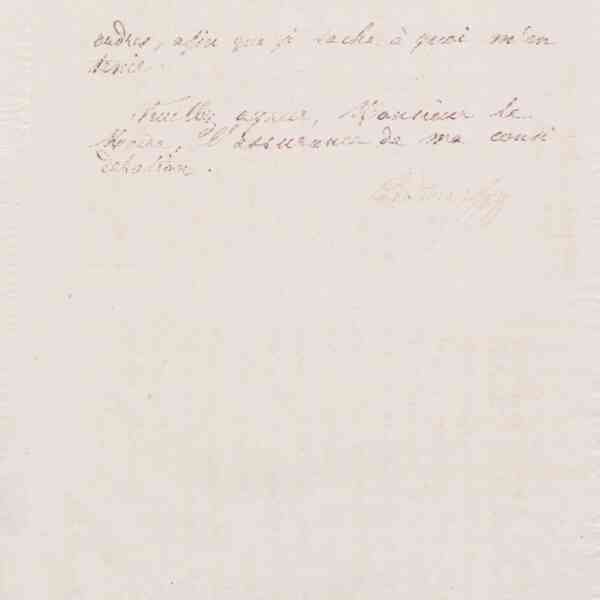 ordres, afin que je sache à quoi m'en
tenir.
Veuillez agréer, Monsieur le
Maire, l'assurance de ma consi
dération.